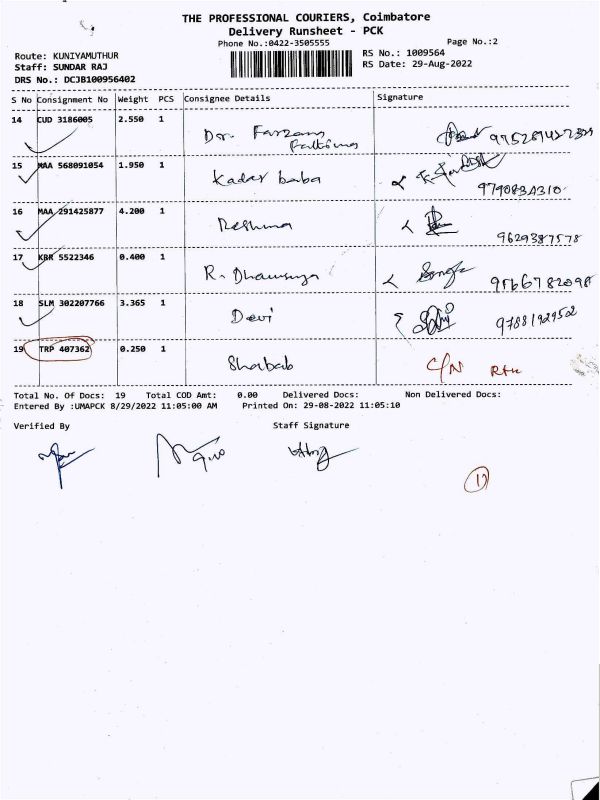 THE PROFESSIONAL COURIERS, Coimbatore
Delivery Runsheet - PCK
Phone No.:0422-3505555
Page No.:2
Route: KUNIYAMUTHUR
RS No.: 1009564
Staff: SUNDAR RAJ
RS Date: 29-Aug-2022
DRS No.: DCJB100956402
S No Consignment No Weight PCS Consignee Details Signature
14 CUD 3186005 2.550 1 Dr. Farzana
15 MAA 568091054 1.950 1 Kadar baba
16 MAA 291425877 4.200 1 Reshma
9629387578
17 KBR 5522346 0.400 1 R. 
18 SLM 302207766 3.365 1 Devi
9788192952
19 TRP 407362 0.250 1 Shabab C/N
Total No. Of Docs: 19 Total COD Amt: 0.00 Delivered Docs: Non Delivered Docs:
Entered By :UMAPCK 8/29/2022 11:05:00 AM Printed On: 29-08-2022 11:05:10
Verified By Staff Signature